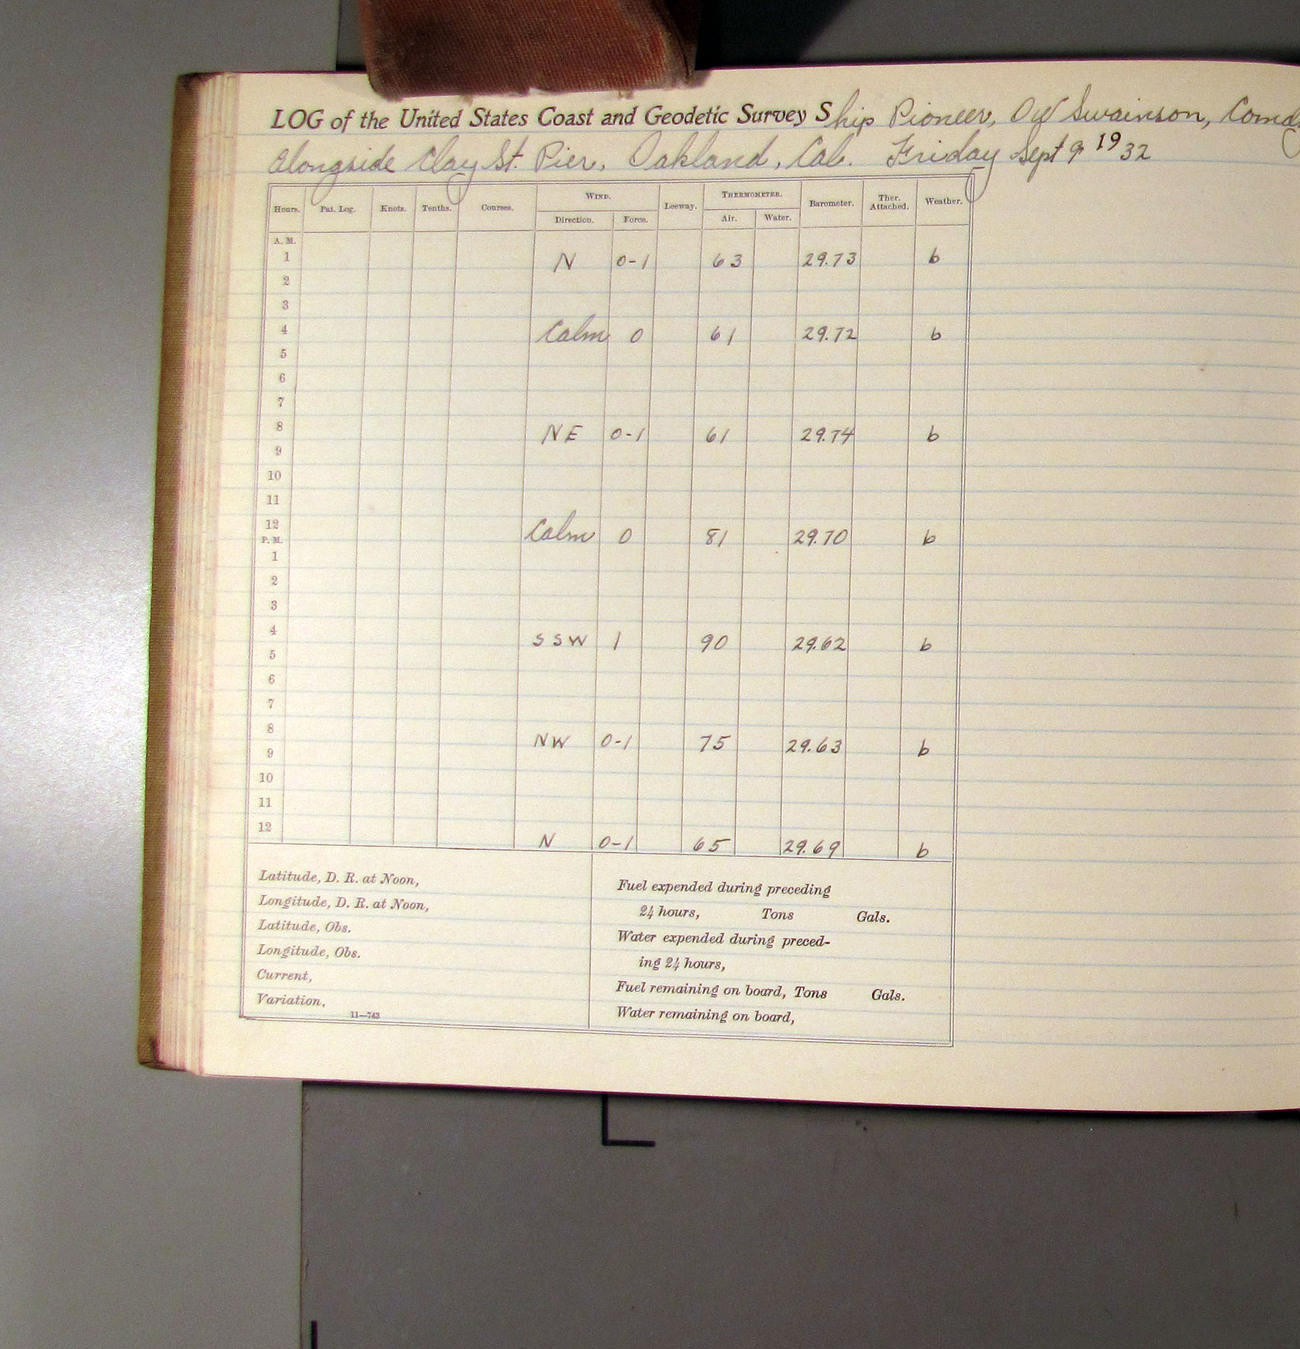 LOG of the United States Coast and Geodetic Survey Ship Pioneer, OW Swainson, Comdg
Alongside Clay St. Pier, Oakland, Cal. Friday Sept 9 1932
Hours. Pat. Log. Knots. Tenths. Courses. WIND. Direction. Force. Leeway. THERMOMETER. Air. Water. Barometer. Ther. Attached. Weather.
A. M.
1 N 0-1 63 29.73 b
2
3
4 Calm 0 61 29.72 b
5
6
7
8 NE 0-1 61 29.74 b
9
10
11
12 Calm 0 81 29.70 b
P. M.
1
2
3
4 SSW 1 90 29.62 b
5
6
7
8 NW 0-1 75 29.63 b
9
10
11
12 N 0-1 65 29.69 b
Latitude, D. R. at Noon,
Longitude, D. R. at Noon,
Latitude, Obs.
Longitude, Obs.
Current,
Variation,
11—743
Fuel expended during preceding
24 hours, Tons Gals.
Water expended during preced-
ing 24 hours,
Fuel remaining on board, Tons Gals.
Water remaining on board,